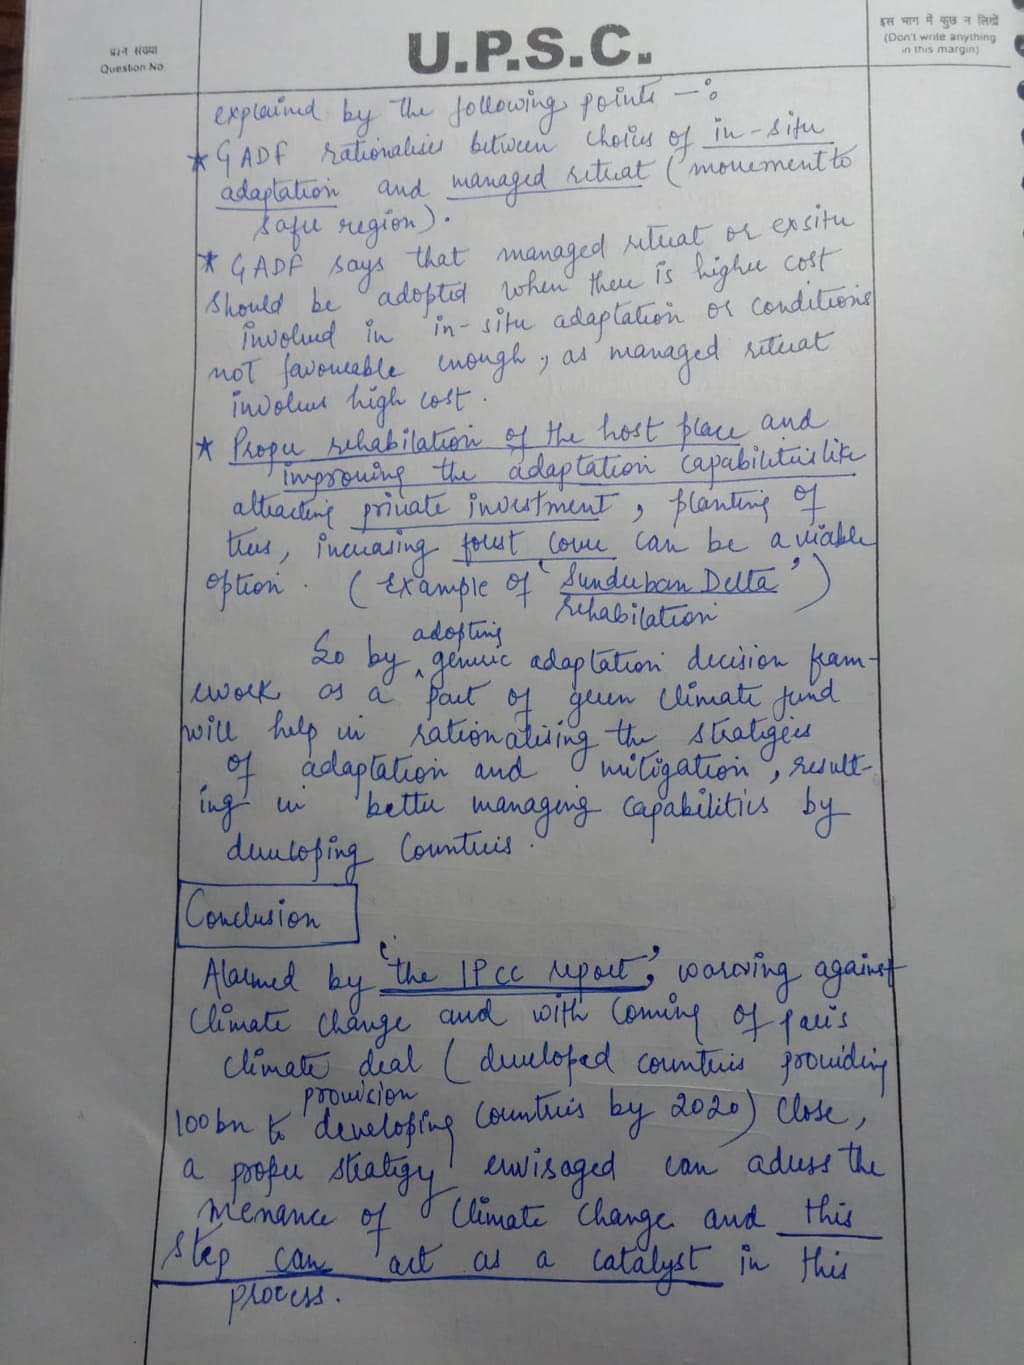 प्रश्न संख्या
Question No.
U.P.S.C.
इस भाग में कुछ न लिखें
(Don't write anything
in this margin)
explained by the following points —:
* GADF rationalises between choices of in-situ
adaptation and managed retreat (movement to
safe region).
* GADF says that managed retreat or exsitu
should be adopted when there is higher cost
involved in in-situ adaptation or conditions
not favourable enough, as managed retreat
involves high cost.
* Proper rehabilation of the host place and
improving the adaptation capabilities like
attracting private investment, planting of
trees, increasing forest cover can be a viable
option. (Example of 'Sunderban Delta')
rehabilation
adopting
So by ^ generic adaptation decision fram-
ework as a part of green climate fund
will help in rationalising the strategies
of adaptation and mitigation, result-
ing in better managing capabilities by
developing countries.
Conclusion
Alarmed by 'the IPCC report', warning against
climate change and with coming of paris
climate deal (developed countries providing
provision
100bn to developing countries by 2020) close,
a proper strategy envisaged can adress the
menance of climate change and this
step can act as a catalyst in this
process.